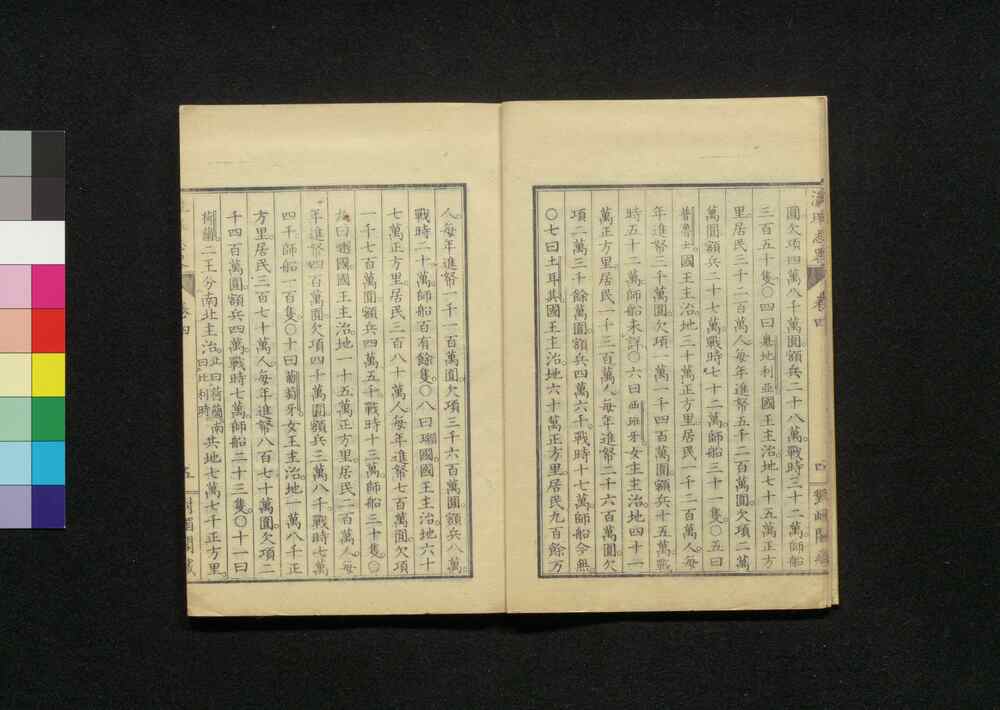 圓欠項四萬八千萬圓額兵二十八萬。戰時三十二萬。師船
三百五十隻〇四曰奧地利亞國王主治地七十五萬正方
里。居民三十二百萬人。每年進幣五千二百萬圓。欠項二萬
萬圓額兵二十七萬戰時七十二萬。師船三十一隻〇五曰
普魯士國王主治地三十萬正方里。居民一千二百萬人。每
年進幣三千萬圓欠項一萬一千四百萬圓額兵十五萬。戰
時五十二萬師船未詳〇六曰西班牙女主主治地四十一
萬正方里。居民一千三百萬人。每年進幣二千六百萬圓欠
項二萬三千餘萬圓額兵四萬六千。戰時十七萬師船今無。
〇七曰土耳其國王主治地六十萬正方里居民九百餘万
卷四
四
人。每年進幣一千一百萬圓。欠項三千六百萬圓。額兵八萬。
戰時二十萬師船百有餘隻〇八曰瑞國國王主治。地六十
七萬正方里居民三百八十萬人每年進幣七百萬圓。欠項
一千七百萬圓額兵四萬五千戰時十三萬師船三十隻〇
九曰嗹國國王主治。地一十五萬正方里。居民二百萬人。每
年進幣四百萬圓欠項四十萬圓額兵三萬八千。戰時七萬
四千師船一百隻〇十曰葡萄牙。女王主治。地一萬八千正
方里。居民三百七十萬人。每年進幣八百七十萬圓。欠項二
千四百萬圓。額兵四萬。戰時七萬師船二十三隻。〇十一曰
荷蘭。二王分南北主治。北曰荷蘭南曰比利時共地七萬七千正方里。
卷四
五